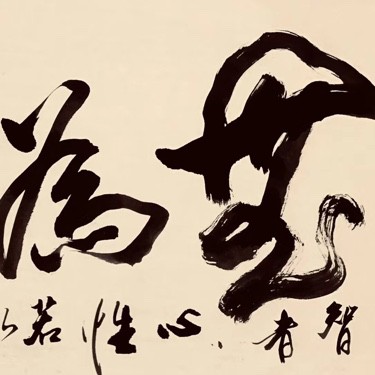 無為
智者心性若